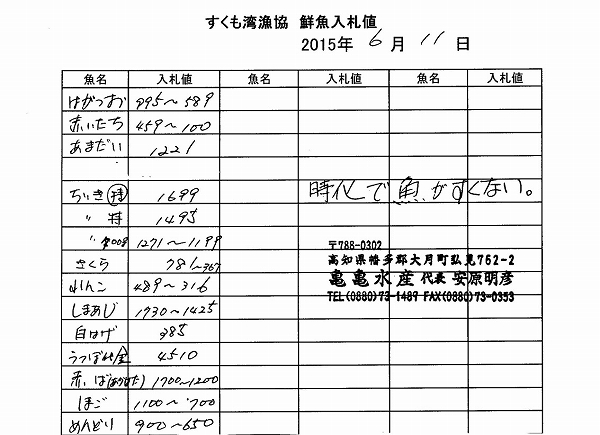 すくも湾漁協 鮮魚入札値
2015年 6月 11日
魚名 入札値 魚名 入札値 魚名 入札値
はがつお 995～589
赤いたち 459～100
あまだい 1221
ちいき㊕ 1699
〃 特 1495
〃 1271～1199
さくら 781～367
れんこ 489～316
しまあじ 1730～1425
白はげ 385
うつぼ 4510
赤いば 1700～1200
ほご 1100～700
めんどり 900～650
時化で魚がすくない。
〒788-0302
高知県幡多郡大月町弘見752-2
亀亀水産 代表 安原明彦
TEL(0880)73-1487 FAX(0880)73-0353